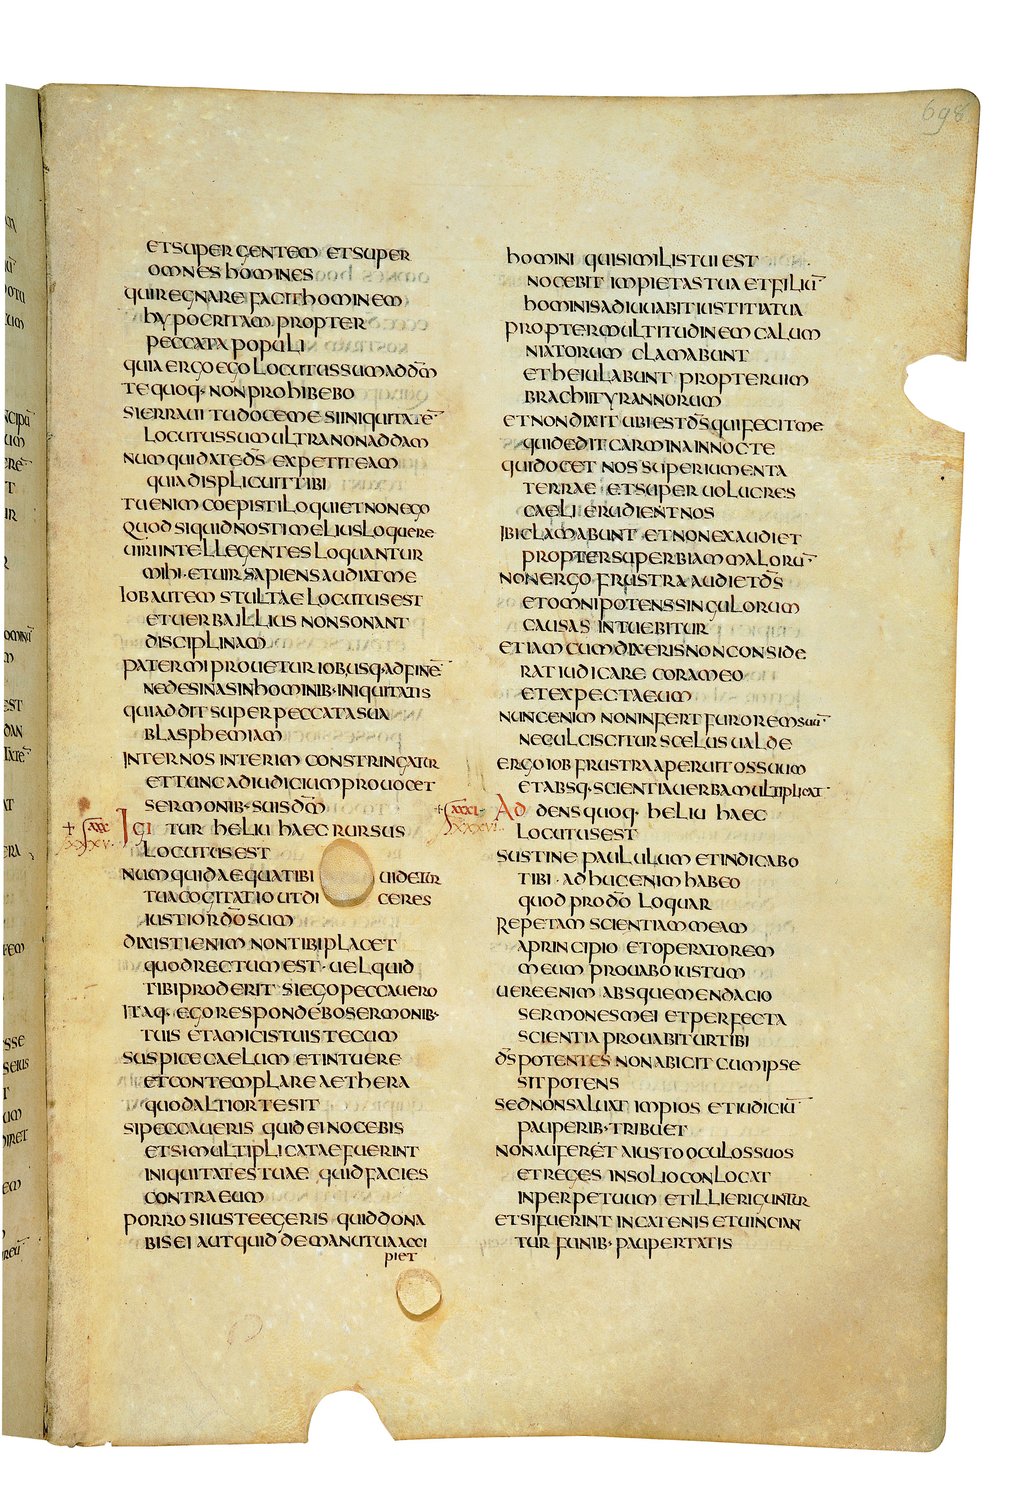 698
et super gentem et super
omnes homines
qui regnare facit hominem
hypocritam propter
peccata populi
quia ergo ego locutus sum ad dm̄
te quoq· non prohibebo
si erravi tu doce me si iniquitatē
locutus sum ultra non addam
numquid a te ds̄ expetit eam
quia displicuit tibi
tu enim coepisti loqui et non ego
quod si quid nosti melius loquere
uiri intellegentes loquantur
mihi· et uir sapiens audiat me
Iob autem stulte locutus est
et uerba illius non sonant
disciplinam
pater mi prouetur iob usq· ad finē
ne desinas in hominib· iniquitatis
quia addit super peccata sua
blasphemiam
inter nos interim constringatur
et tunc ad iudicium prouocet
sermonib· suis dm̄
xxxv Igitur heliu haec rursus
locutus est
numquid aequa tibi uidetur
tua cogitatio ut diceres
iustior dō sum
dixisti enim non tibi placet
quod rectum est· uel quid
tibi proderit si ego peccauero
itaq· ego respondebo sermonib·
tuis et amicis tuis tecum
suspice caelum et intuere
et contemplare aethera
quod altior te sit
si peccaueris quid ei nocebis
et si multiplicatae fuerint
iniquitates tuae quid facies
contra eum
porro si iuste egeris quid dona
bis ei aut quid de manu tua acci
piet
homini qui similis tui est
nocebit impietas tua et filiū
hominis adiuuabit iustitia tua
propter multitudinem calum
niatorum clamabunt
et heiulabunt propter uim
brachii tyrannorum
et non dixit ubi est ds̄ qui fecit me
qui dedit carmina in nocte
qui docet nos super iumenta
terrae et super uolucres
caeli erudient nos
ibi clamabunt et non exaudiet
propter superbiam malorū
non ergo frustra audiet ds̄
et omnipotens singulorum
causas intuebitur
etiam cum dixeris non conside
rat iudicare coram eo
et expecta eum
nunc enim non infert furorem suū
nec ulciscitur scelus ualde
ergo iob frustra aperuit os suum
et absq· scientia uerba multiplicat
xxxvi Addens quoq· heliu haec
locutus est
sustine paululum et indicabo
tibi· adhuc enim habeo
quod pro dō loquar
repetam scientiam meam
a principio et operatorem
meum probabo iustum
uere enim absque mendacio
sermones mei et perfecta
scientia probabitur tibi
ds̄ potentes non abicit cum ipse
sit potens
sed non saluat impios et iudiciū
pauperib· tribuet
non auferet a iusto oculos suos
et reges in solio conlocat
in perpetuum et illi eriguntur
et si fuerint in catenis et uincian
tur funib· paupertatis